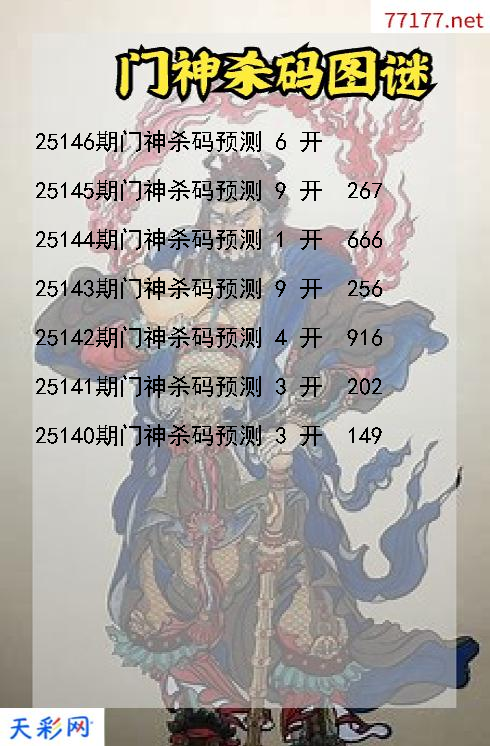 77177.net
门神杀码图谜
25146期门神杀码预测 6 开
25145期门神杀码预测 9 开 267
25144期门神杀码预测 1 开 666
25143期门神杀码预测 9 开 256
25142期门神杀码预测 4 开 916
25141期门神杀码预测 3 开 202
25140期门神杀码预测 3 开 149
天彩网